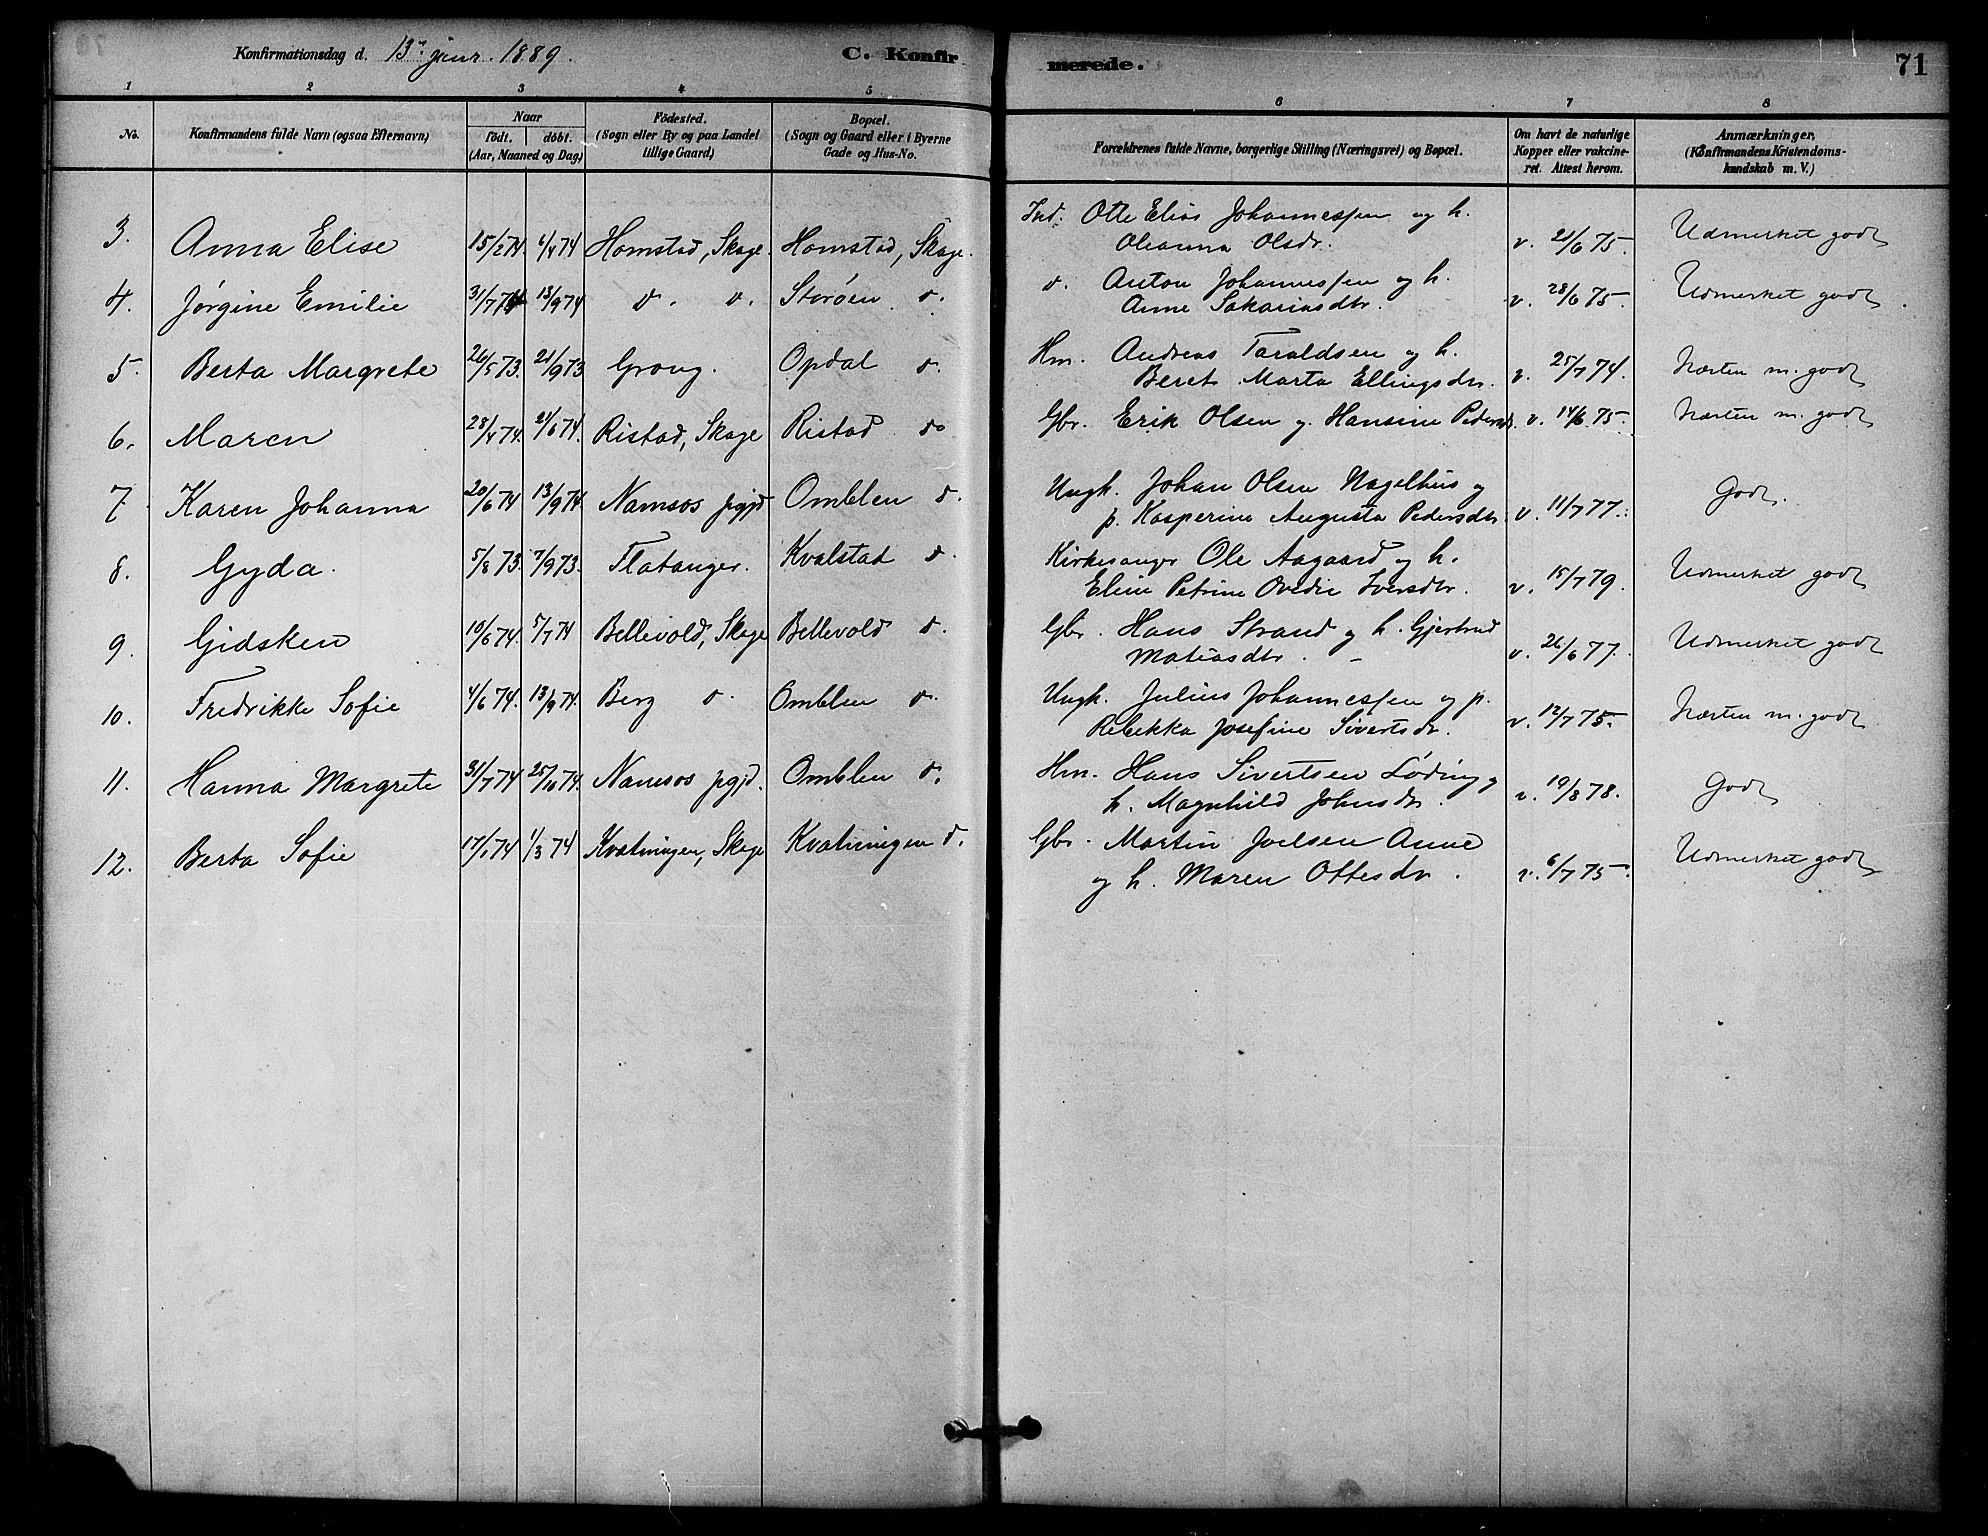 Konfirmationsdag d. 13de januar 1889. C. Konfirmerede. 71
1 2 3 4 5 6 7 8
No. Konfirmandens fulde Navn (ogsaa Efternavn) Naar født. døbt. (Aar, Maaned og Dag) Fødested. (Sogn eller By og paa Landet tillige Gaard) Bopæl. (Sogn og Gaard eller i Byerne Gade og Hus-No. Forældrenes fulde Navne, borgerlige Stilling (Næringsvei) og Bopæl. Om havt de naturlige Kopper eller vakcineret. Attest herom. Anmærkninger. (Konfirmandens Kristendomskundskab m. V.)
3. Anna Elise 15/2 74. 6/4 74 Homstad, Skage. Homstad, Skage. Ind. Otte Elias Johannessen og h.
Oleanna Olsdr. v. 21/6 75. Udmerket godt
4. Jørgine Emilie 31/7 74 13/9 74 d. d. Storøen d. d. Anton Johannessen og h.
Anne Sakariasdtr. v. 28/6 75. Udmerket godt
5. Berta Margrete 26/5 73. 21/9 73 Grong. Opdal d. Hm. Andreas Taraldsen og h.
Beret Marta Ellingsdtr. v. 25/7 74. Næsten m. godt
6. Maren 28/4 74. 21/6 74. Ristad, Skage Ristad do Gbr. Erik Olsen g. Hansine Pedersd. v. 14/6 75. Næsten m. godt
7. Karen Johanna 20/6 74 13/9 74. Namsos pgjd Omblen d. Ungk. Johan Olsen Nagelhus og
p. Kasperine Augusta Pedersdtr. v. 11/7 77. Godt.
8. Gyda. 5/8 73. 7/9 73. Flatanger. Kvalstad d. Kirkesanger Ole Aagaard og h.
Eline Petrine Ovedie Iversdtr. v. 15/7 79. Udmerket godt
9. Gidsken 10/6 74. 5/7 74 Bellevold, Skage Bellevold d. Gbr. Hans Strand og h. Gjertrud
Matiasdtr. v. 26/6 77. Udmerket godt
10. Fredrikke Sofie 4/6 74. 13/9 74. Berg d. Omblen d. Ungk. Julius Johannessen og p.
Rebekka Josefine Sivertsdr. v. 12/7 75. Næsten m. godt
11. Hanna Margrete 31/7 74 25/10 74. Namsos pgjd. Omblen d. Hm. Hans Sivertsen Løding og
h. Magnhild Johnsdr. v. 19/8 78. Godt
12. Berta Sofie 17/1 74 1/3 74 Kvatningen, Skage Kvatningen d. Gbr. Martin Joelsen Anne
og h. Maren Ottesdr. v. 6/7 75. Udmerket godt